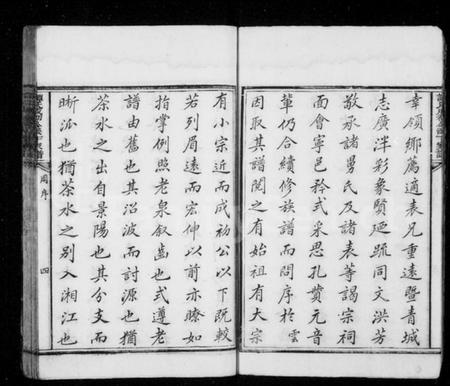 幸領鄉薦適表兄重遠暨青城
志廣泮彩象賢廷颺同文洪芳
敬承諸舅氏及諸表等謁宗祠
面會寧邑矜式采思孔賞元音
輩仍合續修族譜而問序於雲
因取其譜閱之有始祖有大宗
有小宗近而成初公以下既較
若列眉遠而宏仲以前亦瞭如
指掌例照老泉敘齒也式遵老
譜由舊也其沿波而討源也猶
茶水之出自景陽也其分支而
晰派也猶茶水之別入湘江也
周序
四